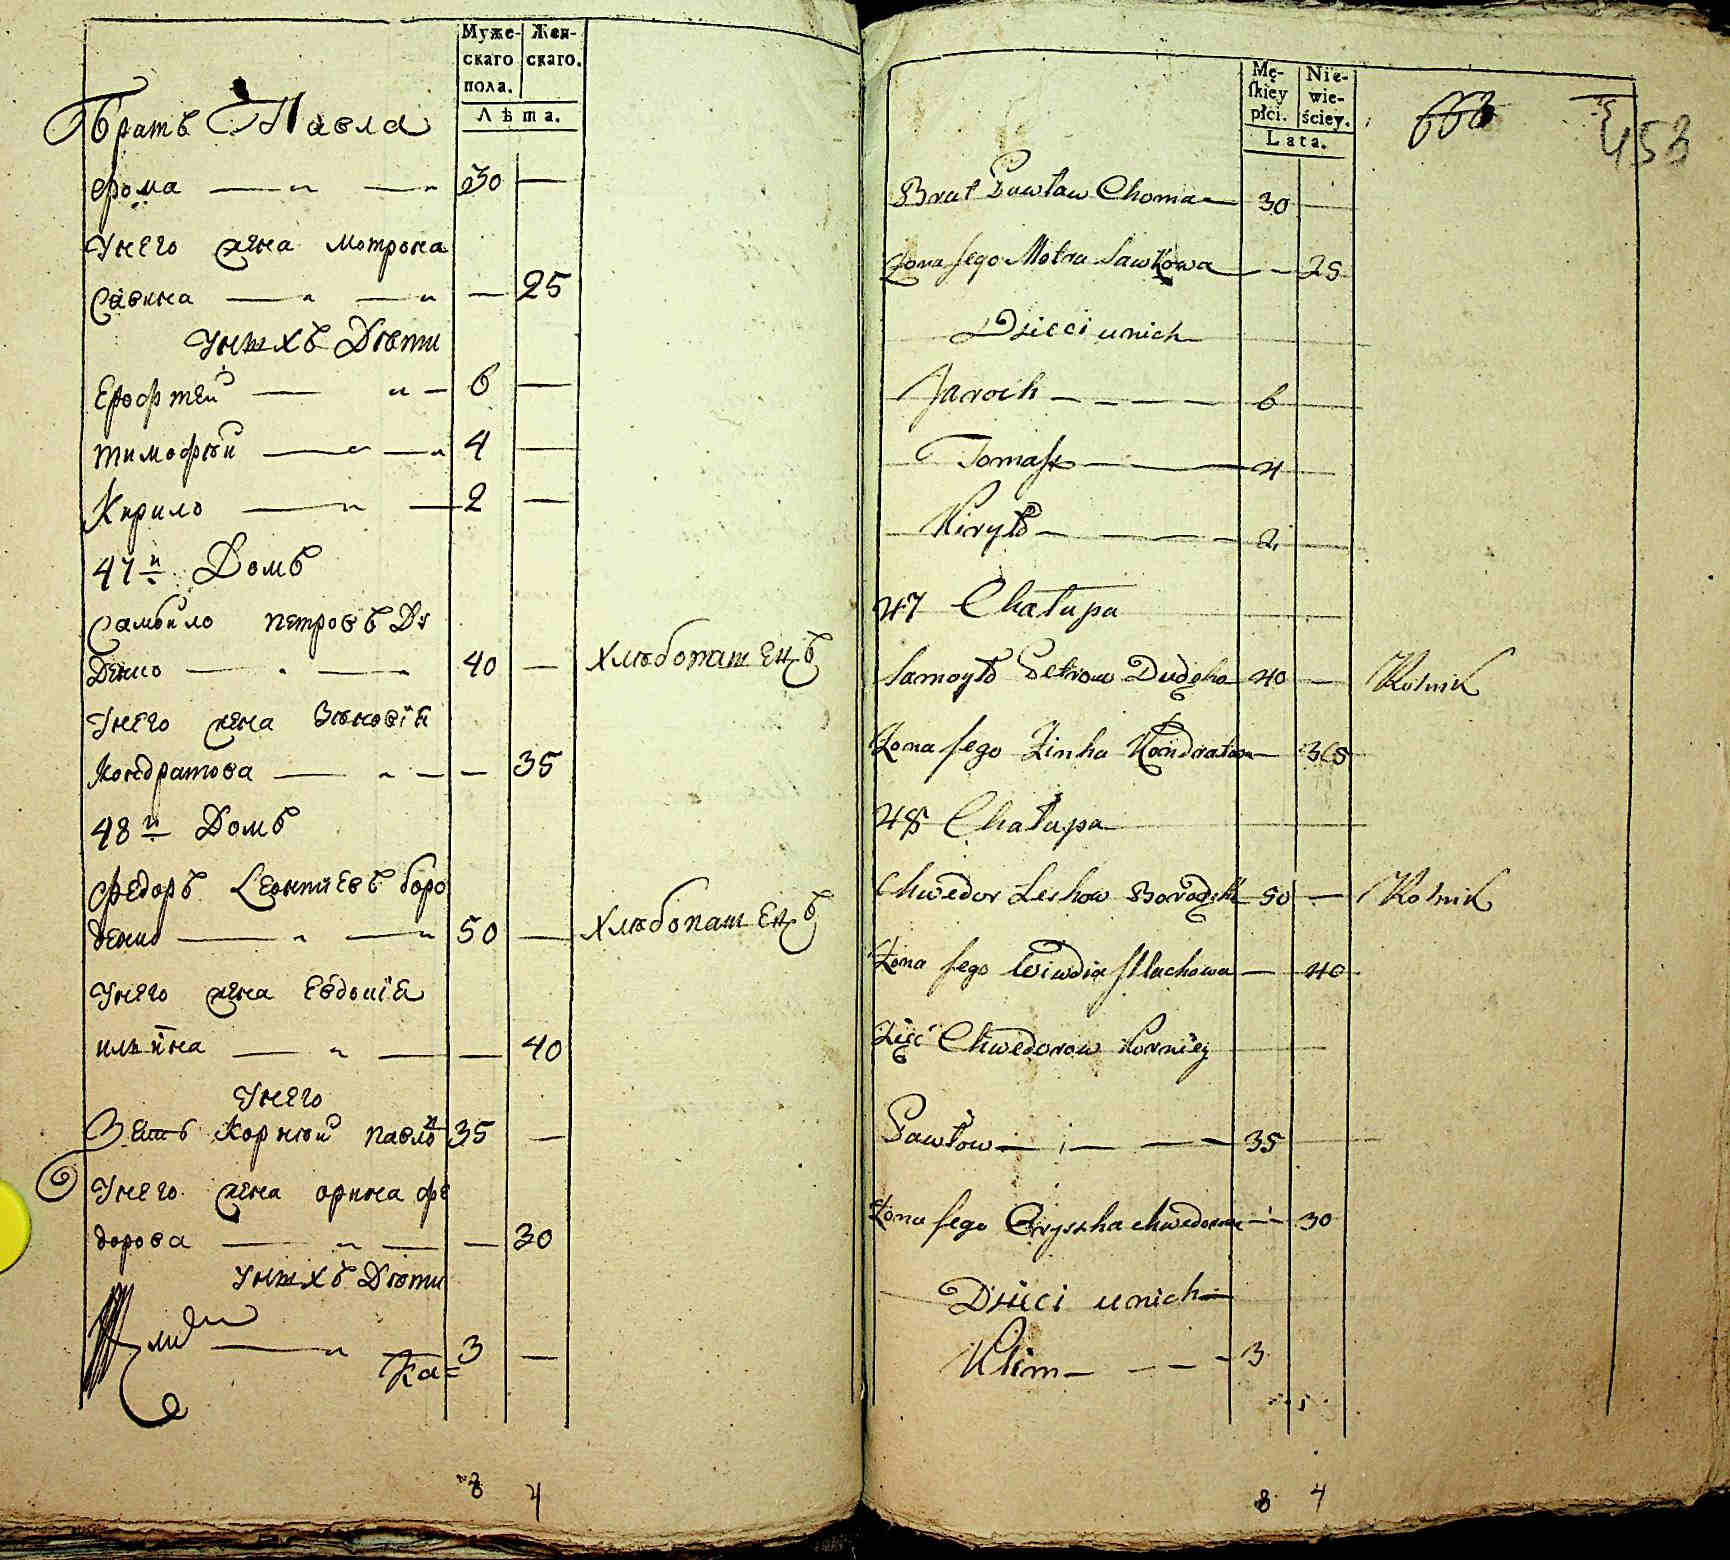 Муже-
скаго
пола.
Жен-
скаго.
Лѣта.
Братъ Павла
Фома 30 —
У него жена Мотрона
Савина — 25
У нихъ Дѣти
Ерофтей 6 —
Тимофѣй 4 —
Кирило 2 —
47й Домъ
Самойло Петровъ Ду
денко 40 — Хлѣбопашецъ
У него жена Зѣновія
Кондратова — 35
48й Домъ
Федоръ Леонтіевъ боро
денко 50 — Хлѣбопашецъ
У него жена Евдокія
ильіна — 40
У него
Зеть Корнѣй павло 35 —
У него жена орина фе
дорова — 30
У нихъ Дѣти
Клим 3 —
Ка=
8 4
Mę-
ſkiey
płci.
Nie-
wie-
ściey.
Lata.
453
Brat Pawław Choma 30
Żona jego Motra Sawkowa — 25
Dzieci u nich
Jaroch 6
Tomasz 4
Kiryło 2
47 Chałupa
Samoyło Petrow Dudęko 40 — Rolnik
Żona jego Zinka Kondratow — 35
48 Chałupa
Chwedor Leskow Borodęk 50 — Rolnik
Żona jego Wiwdia Illachowa — 40
Zięć Chwedorow Korniey
Pawłow 35
Żona jego Oryszka Chwedorow — 30
Dzieci u nich
Klim 3
8 4